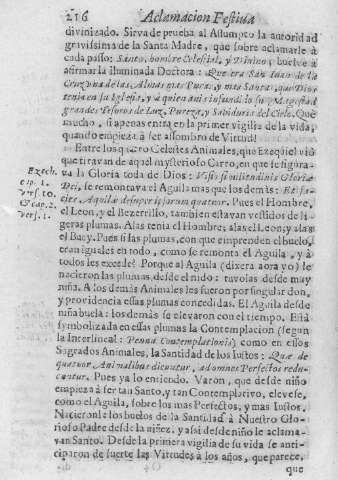 216 Aclamacion Festiva
divinizado. Sirva de prueba al Assumpto la autoridad
gravissima de la Santa Madre, que sobre aclamarle à
cada passo: Santo, hombre Celestial, y Divino; buelve à
afirmar la iluminada Doctora: Que era San Juan de la
Cruz una de las Almas mas Puras, y mas Santas, que Dios
tenia en su Iglesia, y à quien avia infundido su Magestad
grandes Tesoros de Luz, Pureza, y Sabiduria del Cielo. Què
mucho, si apenas entra en la primer vigilia de la vida,
quando empieza à ser assombro de Virtud!
Entre los quatro Celestes Animales, que Ezequiel viò
que tiravan de aquel mysterioso Carro, en que se figura-
va la Gloria toda de Dios: Visio similitudinis Gloriæ
Dei, se remontava el Aguila mas que los demàs: Et fa-
cies Aquilæ desuper ipsorum quatuor. Pues el Hombre,
el Leon, y el Bezerrillo, tambien estavan vestidos de li-
geras plumas. Alas tenia el Hombre; alas el Leon; y alas
el Buey. Pues si las plumas, con que emprenden el buelo,
eran iguales en todo, como se remonta el Aguila, y à
todos les excede? Porque al Aguila (dixera aora yo) le
nacieron las plumas, desde el nido: tuvolas desde muy
niña. A los demàs Animales les fueron por singular don,
y providencia essas plumas concedidas. El Aguila desde
niña buela: los demàs se elevaron con el tiempo. Està
symbolizada en essas plumas la Contemplacion (segun
la Interlineal: Penna Contemplationis) como en essos
Sagrados Animales, la Santidad de los Justos: Quæ de
quatuor Animalibus dicuntur, ad omnes Perfectos redu-
cuntur. Pues ya lo entiendo. Varon, que desde niño
empieza à ser tan Santo, y tan Contemplativo, elevese,
como el Aguila, sobre los mas Perfectos, y mas Justos.
Nacieronle los buelos de la Santidad à Nuestro Glo-
rioso Padre desde la niñez, y assi desde niño le aclama-
van Santo. Desde la primera vigilia de su vida se anti-
ciparon de suerte las Virtudes à los años, que parece,
que
Ezech.
cap. 1.
vers. 10.
& cap. 2.
vers. 1.